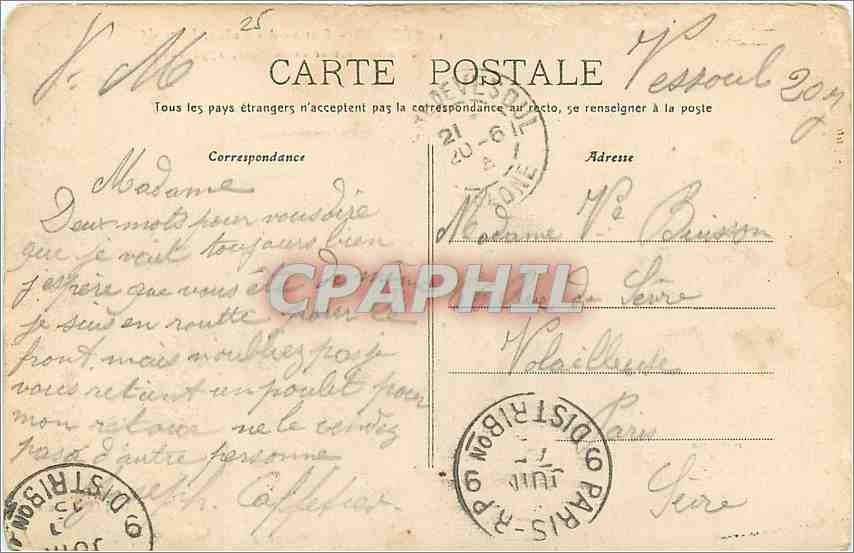 25
F. M
CARTE POSTALE
Vessoul 20
Tous les pays étrangers n'acceptent pas la correspondance au recto, se renseigner à la poste
Correspondance
Adresse
DE VESOUL
21
20-6
SAONE
Madame
Deux mots pour vous dire
que je vait toujours bien
j'espère que vous ête de même
je suis en routte pour le
front mais n'oubliez pas je
vous retient un poulet pour
mon retour ne le vendez
pas a d'autre personne
Joseph
Madame Ve Buisson
Rue de Sèvre
Volailleuse
Paris
Sèvre
CPAPHIL
PARIS-R.P 6 DISTRIBON
JUIL
6 DISTRIBON